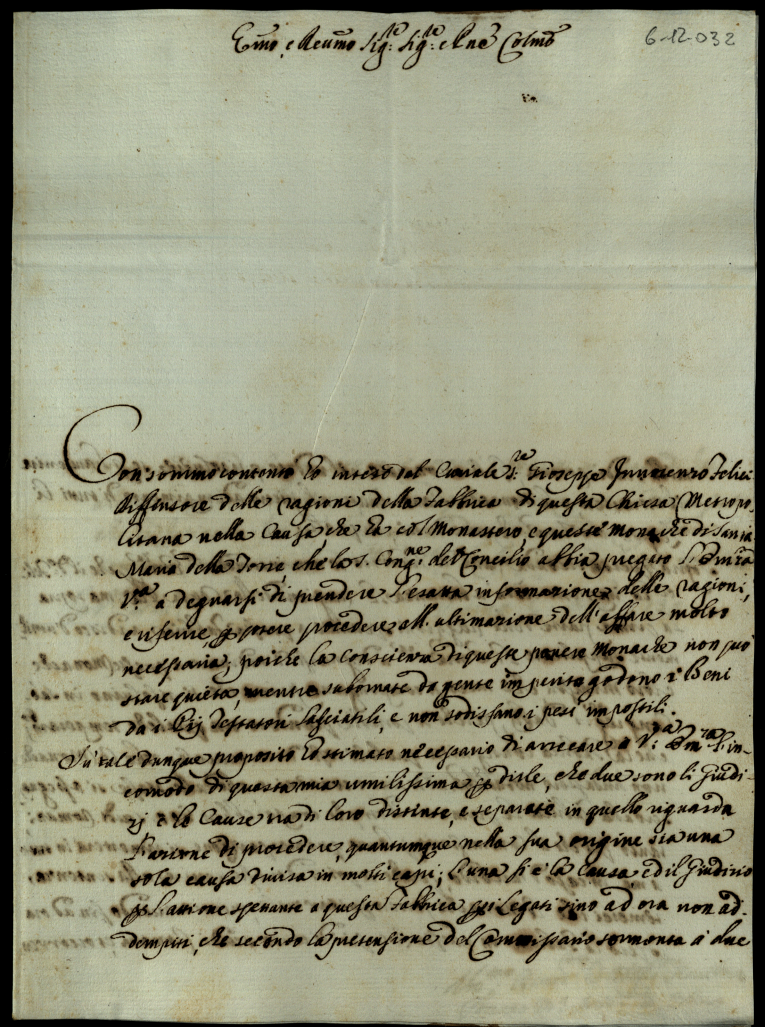 Emo, e Reumo Sig:re Sig:re e Pne Colmo
6-12-032
Con sommo contento hò inteso dal Curiale S:re Gioseppe Innocenzo Felici
diffensore delle ragioni della Fabbrica di questa Chiesa Metropo-
litana nella Causa, che hà col Monastero, e queste Monache di Santa
Maria della Torre che la S. Cong:ne del Concilio abbia pregato l'Emza
V:ra a degnarsi di prendere l'esatta informazione delle ragioni,
e riferire, p potere procedere all'ultimazione dell'affare molto
necessaria; poiche la conscienza di queste povere Monache non può
stare quieta, mentre subornate da gente imperita godono i Beni
da i Pij Testatori lasciatili, e non sodisfano i pesi impostili.
Sù tale dunque proposito hò stimato necessario di arrecare a V:ra Emza l'in-
comodo di questa mia umilissima p dirle, che due sono li Giudi-
zj e le Cause trà di loro distinte, e separate in quello riguarda
l'azione di procedere, quantunque nella sua origine sia una
sola causa divisa in molti capi; l'una si è la causa, ed il Giudizio
p l'azione spettante a questa Fabbrica p i Legati sino ad ora non ad-
dempiti, che secondo la pretensione del Commissario sormonta à due